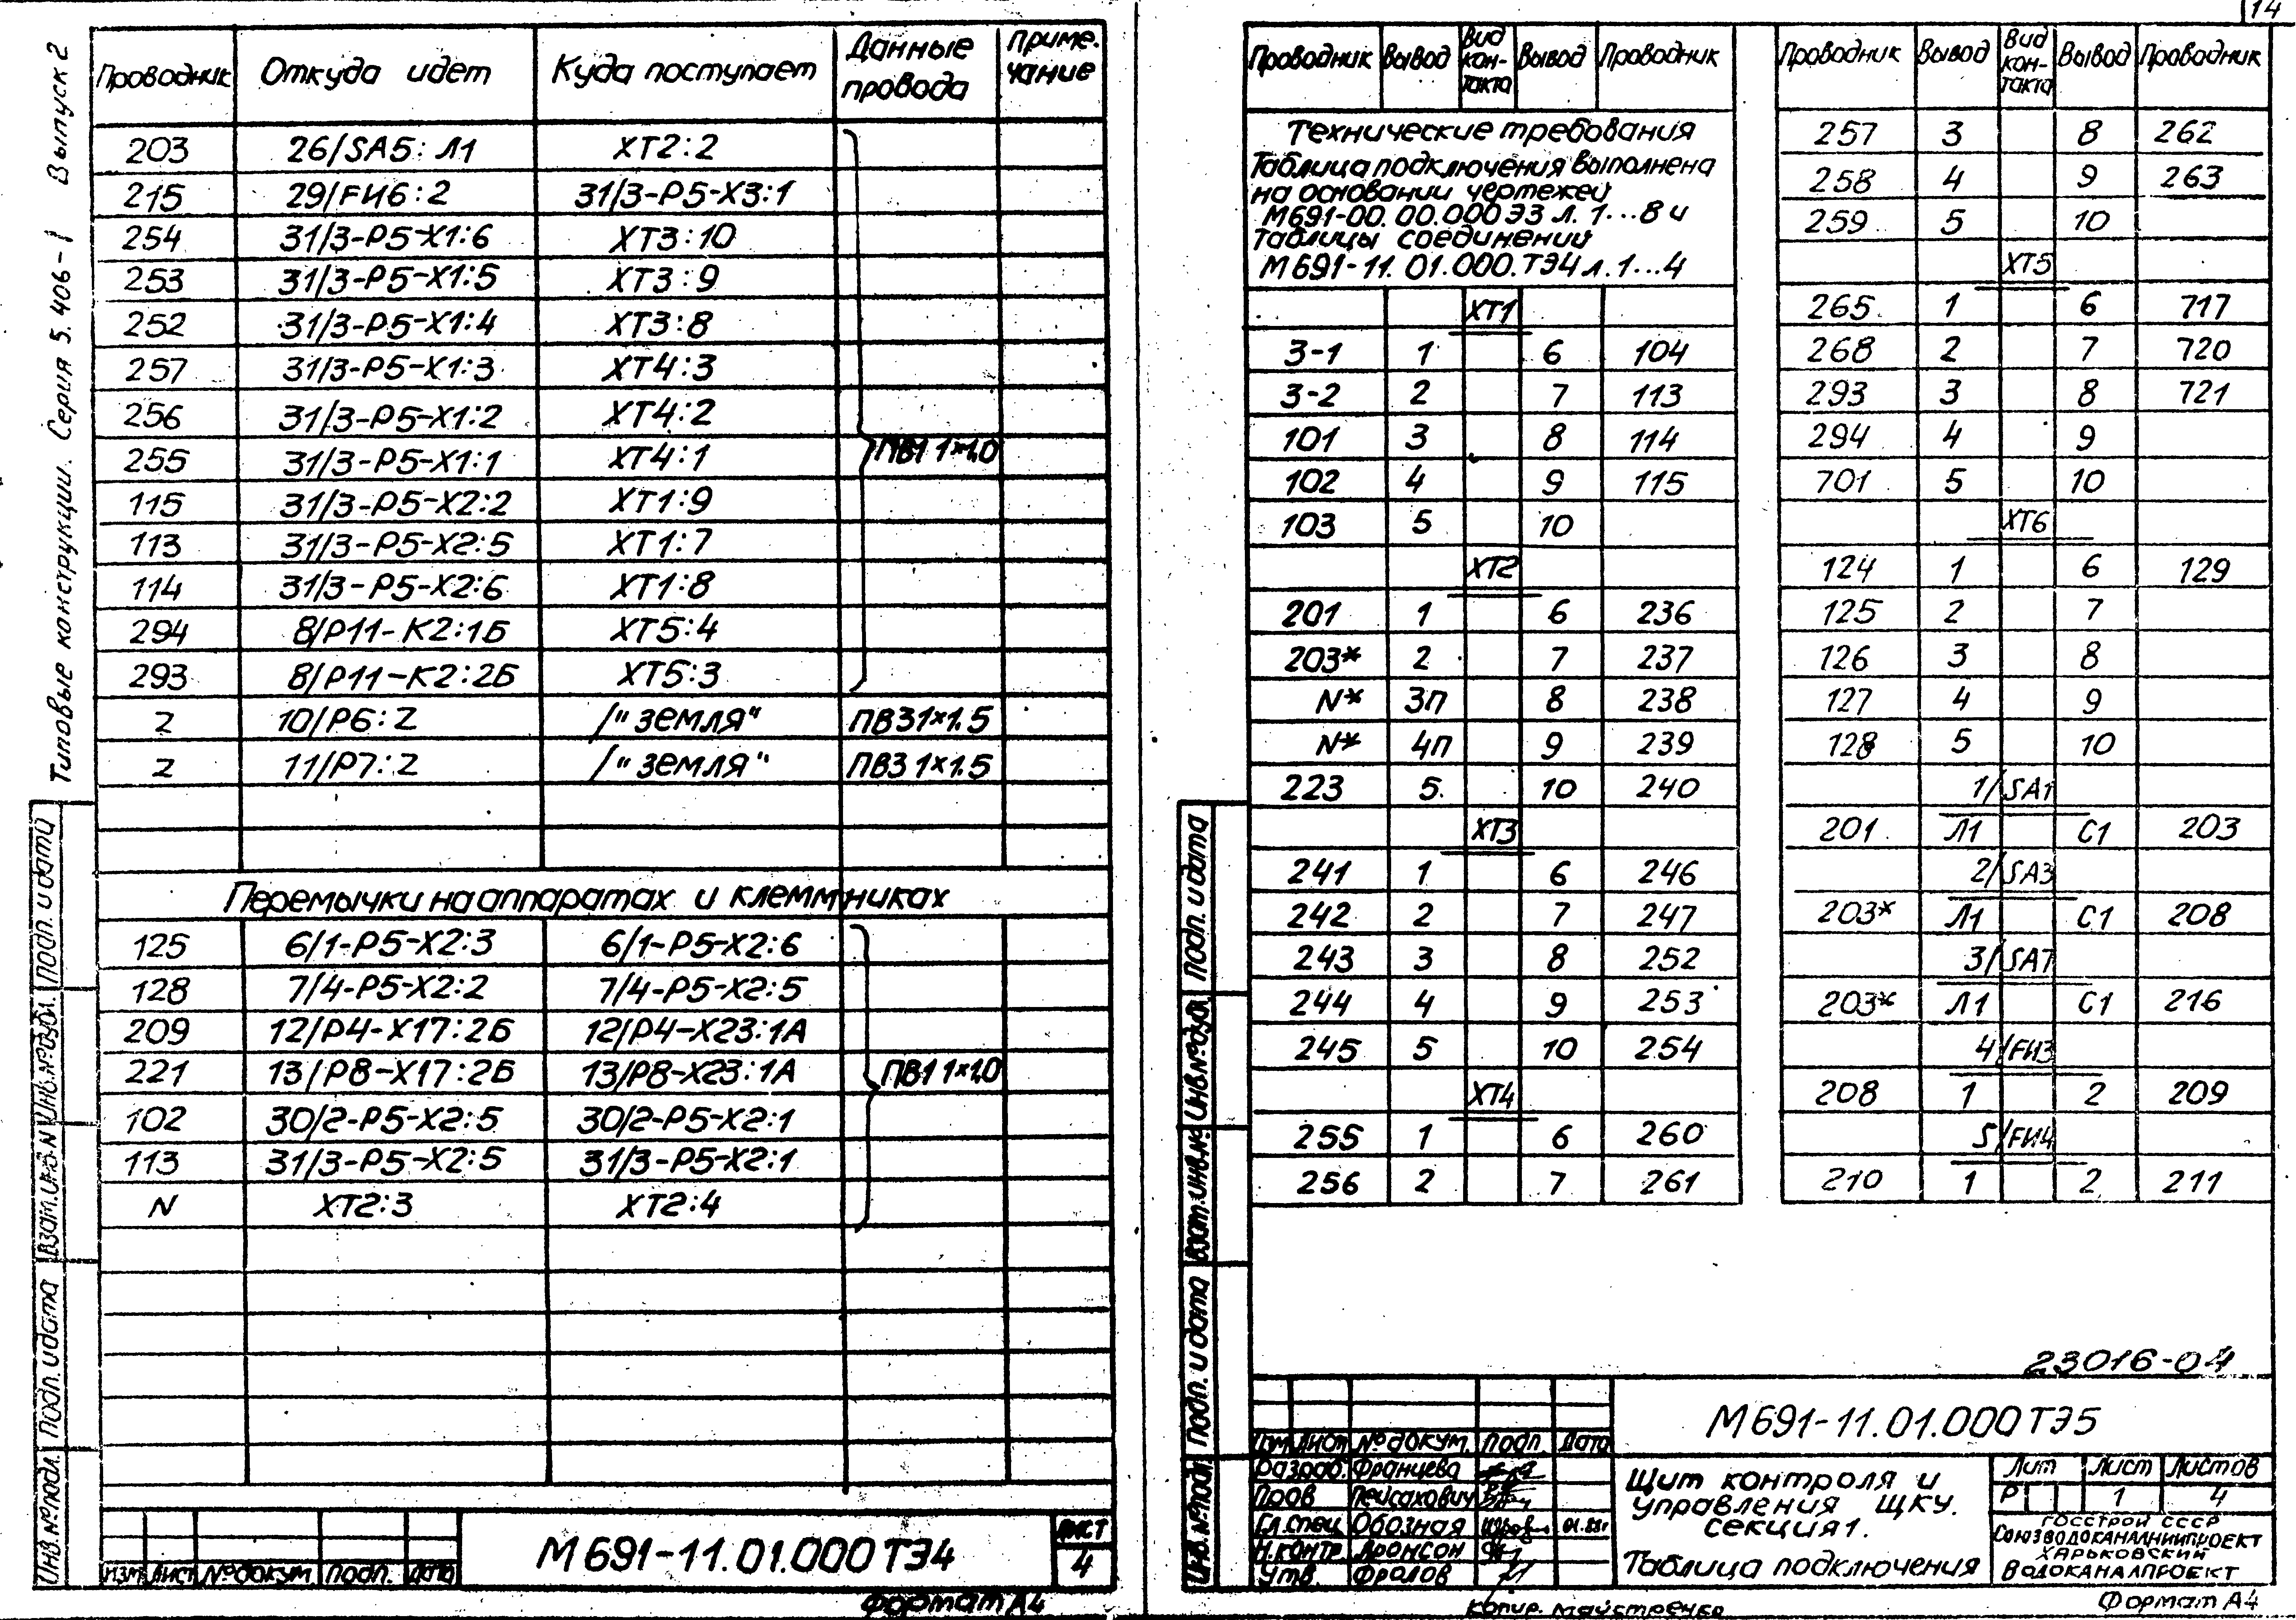 14
Типовые конструкции. Серия 5.406-1 Выпуск 2
Проводник Откуда идет Куда поступает Данные провода Примечание
203 26/SA5: Л1 XT2:2
215 29/FИ6:2 31/3-P5-X3:1
254 31/3-P5-X1:6 XT3:10
253 31/3-P5-X1:5 XT3:9
252 31/3-P5-X1:4 XT3:8
257 31/3-P5-X1:3 XT4:3
256 31/3-P5-X1:2 XT4:2
255 31/3-P5-X1:1 XT4:1 ПВ1 1×1,0
115 31/3-P5-X2:2 XT1:9
113 31/3-P5-X2:5 XT1:7
114 31/3-P5-X2:6 XT1:8
294 8/P11-К2:1Б XT5:4
293 8/P11-К2:2Б XT5:3
2 10/P6:2 /"земля" ПВ3 1×1.5
2 11/P7:2 /"земля" ПВ3 1×1.5
Перемычки на аппаратах и клеммниках
125 6/1-P5-X2:3 6/1-P5-X2:6
128 7/4-P5-X2:2 7/4-P5-X2:5
209 12/P4-X17:2Б 12/P4-X23:1А
221 13/P8-X17:2Б 13/P8-X23:1А ПВ1 1×1,0
102 30/2-P5-X2:5 30/2-P5-X2:1
113 31/3-P5-X2:5 31/3-P5-X2:1
N XT2:3 XT2:4
Инв.№подл. Подп. и дата Взам.инв.№ Инв.№дубл. Подп. и дата
Изм Лист №докум Подп. Дата
М691-11.01.000 ТЭ4
Лист
4
Формат А4
Проводник Вывод Вид контакта Вывод Проводник
Технические требования
Таблица подключения выполнена
на основании чертежей
М691-00.00.000 Э3 л. 1...8 и
Таблицы соединений
М691-11.01.000.ТЭ4 л.1...4
XT1
3-1 1 6 104
3-2 2 7 113
101 3 8 114
102 4 9 115
103 5 10
XT2
201 1 6 236
203* 2 7 237
N* 3п 8 238
N* 4п 9 239
223 5 10 240
XT3
241 1 6 246
242 2 7 247
243 3 8 252
244 4 9 253
245 5 10 254
XT4
255 1 6 260
256 2 7 261
Проводник Вывод Вид контакта Вывод Проводник
257 3 8 262
258 4 9 263
259 5 10
XT5
265 1 6 717
268 2 7 720
293 3 8 721
294 4 9
701 5 10
XT6
124 1 6 129
125 2 7
126 3 8
127 4 9
128 5 10
1/SA1
201 Л1 С1 203
2/SA3
203* Л1 С1 208
3/SA7
203* Л1 С1 216
4/FИ3
208 1 2 209
5/FИ4
210 1 2 211
23016-04
Инв.№подл Подп. и дата Взам.инв.№ Инв.№дубл Подп. и дата
М691-11.01.000 ТЭ5
Изм Лист №докум. Подп. Дата
Разраб. Францева
Пров Пейсахович
Гл.спец Обозная
Н.контр. Аронсон
Утв. Фролов
Щит контроля и
управления ЩКУ.
секция 1.
Таблица подключения
Лит Лист Листов
Р 1 4
ГОССТРОЙ СССР
СОЮЗВОДОКАНАЛНИИПРОЕКТ
ХАРЬКОВСКИЙ
ВОДОКАНАЛПРОЕКТ
Копир. Майстренко
Формат А4